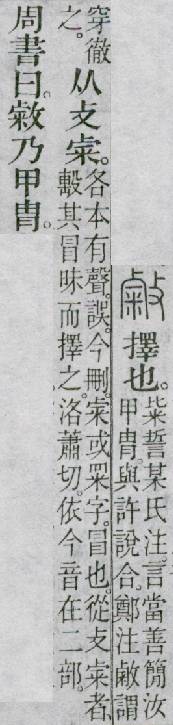 敹 擇也。柴誓某氏注。言當善簡汝
甲冑。與許說合。鄭注敹謂
穿徹
之。
从攴𡩡。各本有聲。誤。今刪。𡩡或罙字。冒也。從攴𡩡者、
毄其冒昧而擇之。洛蕭切。依今音在二部。
周書曰。敹乃甲冑。